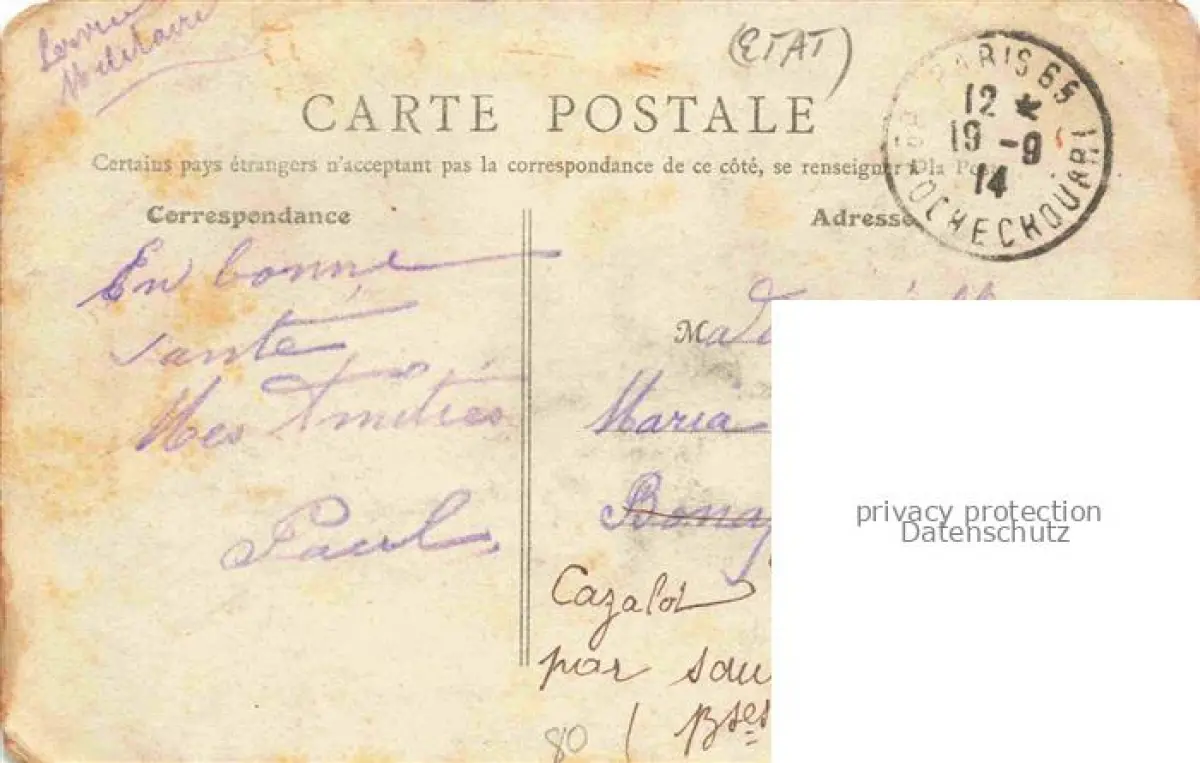 Militaire
(ETAT)
PARIS 65
12 *
19 -9
14
ROCHECHOUART
CARTE POSTALE
Certains pays étrangers n'acceptant pas la correspondance de ce côté, se renseigner à la Poste
Correspondance
Adresse
En bonne
santé
Mes Amitiés
Paul
Maria
Cazalot
par
80 ( Bses
privacy protection
Datenschutz